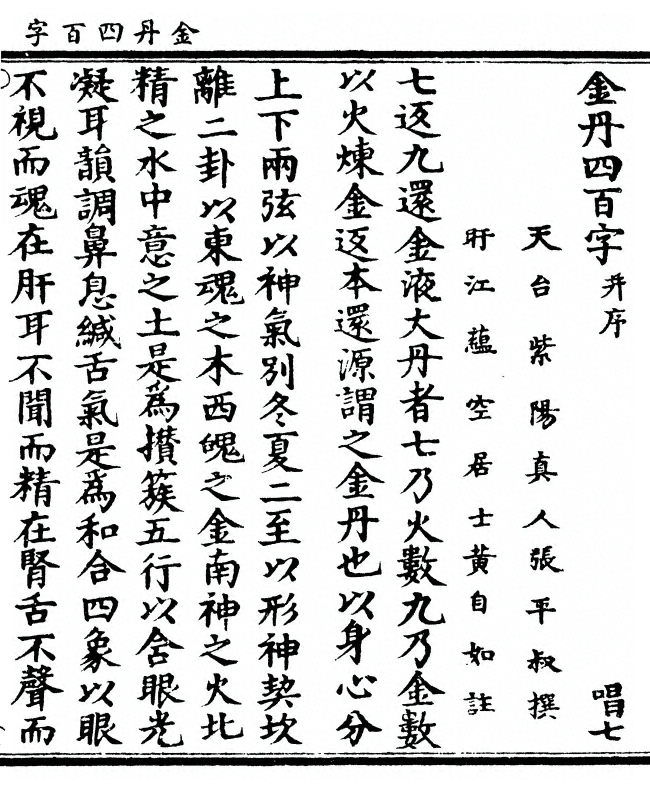 金丹四百字
金丹四百字并序 唱七
天台紫陽真人張平叔撰
盱江蘊空居士黄自如註
七返九還金液大丹者七乃火數九乃金數
以火煉金返本還源謂之金丹也以身心分
上下兩弦以神氣别冬夏二至以形神契坎
離二卦以東魂之木西魄之金南神之火北
精之水中意之土是為攢簇五行以含眼光
凝耳韻調鼻息緘舌氣是為和合四象以眼
不視而魂在肝耳不聞而精在腎舌不聲而